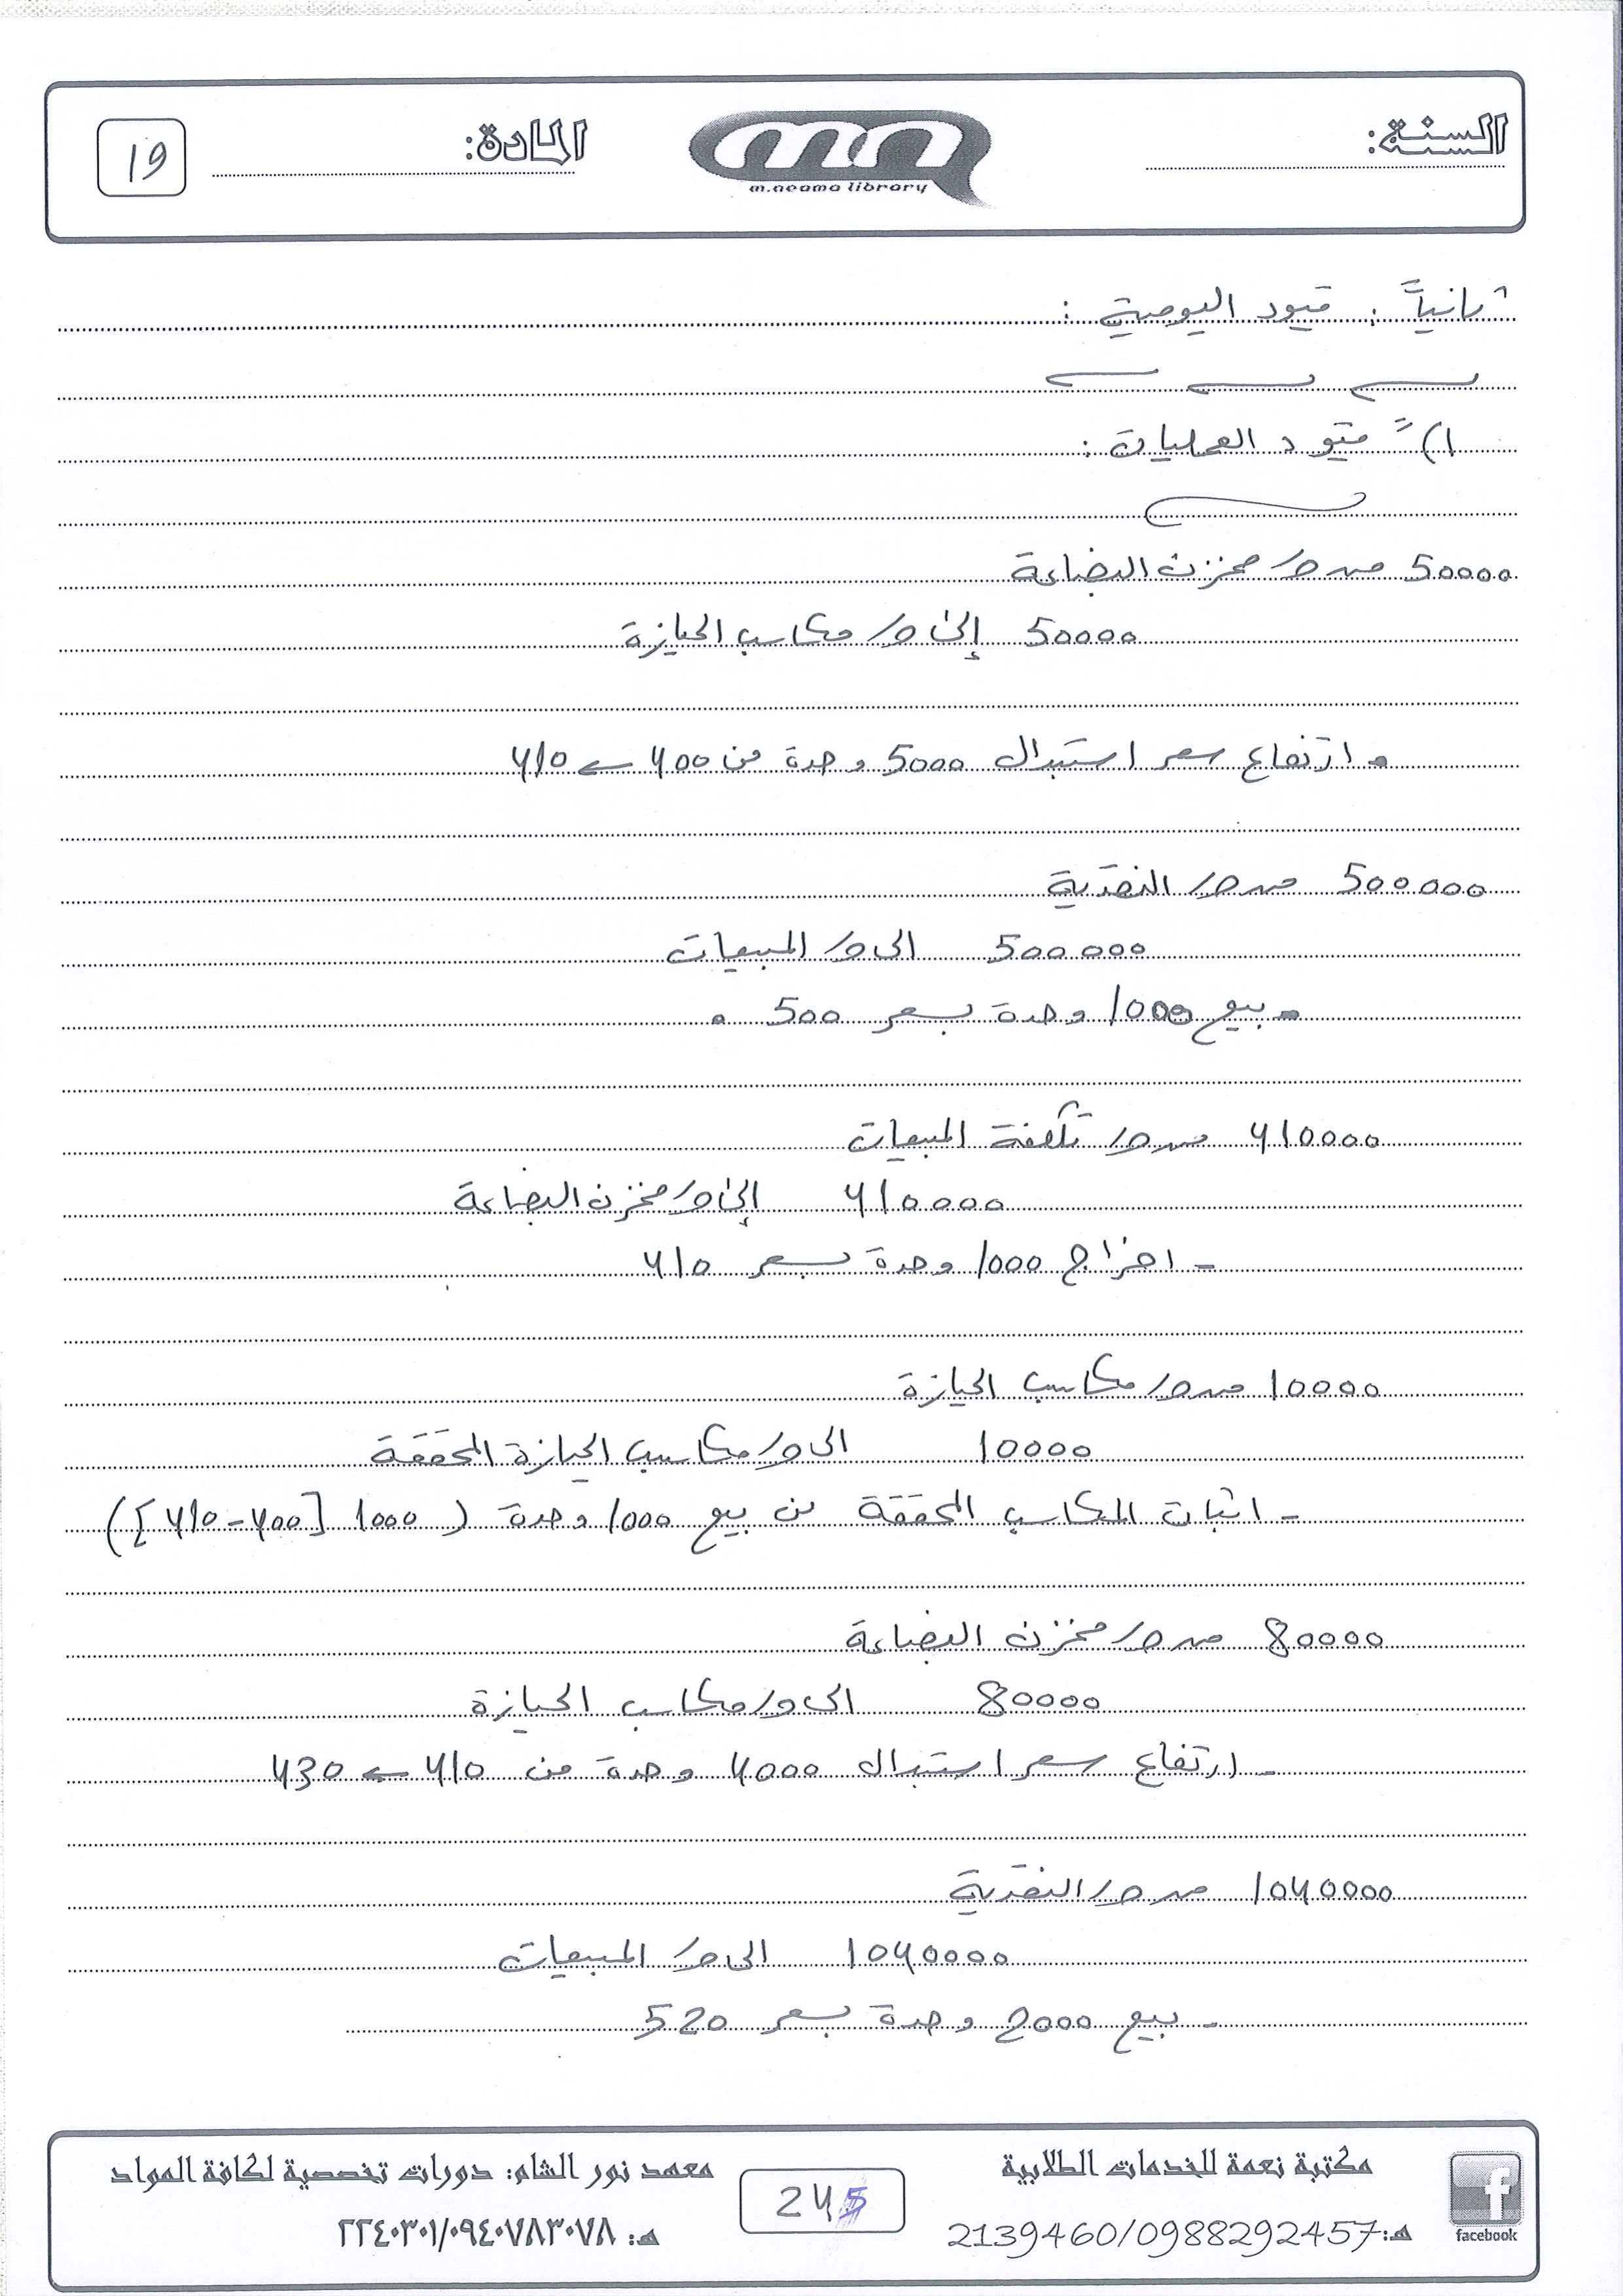 السنة:
m.neama library
المادة:
19
ثانياً : قيود اليومية :
1) قيود العمليات :
50000 من حـ/ مخزن البضاعة
50000 إلى حـ/ مكاسب الحيازة
- ارتفاع سعر استبدال 5000 وحدة من 400 ← 410
500000 من حـ/ النقدية
500000 الى حـ/ المبيعات
- بيع 1000 وحدة بسعر 500 .
410000 من حـ/ تكلفة المبيعات
410000 إلى حـ/ مخزن البضاعة
- اخراج 1000 وحدة بسعر 410
10000 من حـ/ مكاسب الحيازة
10000 الى حـ/ مكاسب الحيازة المحققة
- اثبات المكاسب المحققة من بيع 1000 وحدة ( 1000 [410-400])
80000 من حـ/ مخزن البضاعة
80000 الى حـ/ مكاسب الحيازة
- ارتفاع سعر استبدال 4000 وحدة من 410 ← 430
1040000 من حـ/ النقدية
1040000 الى حـ/ المبيعات
- بيع 2000 وحدة بسعر 520
مكتبة نعمة للخدمات الطلابية
هـ: 2139460/0988292457
facebook
245
معهد نور الشام: دورات تخصصية لكافة المواد
هـ: ٢٢٤٠٣٠١/٠٩٤٠٧٨٣٠٧٨